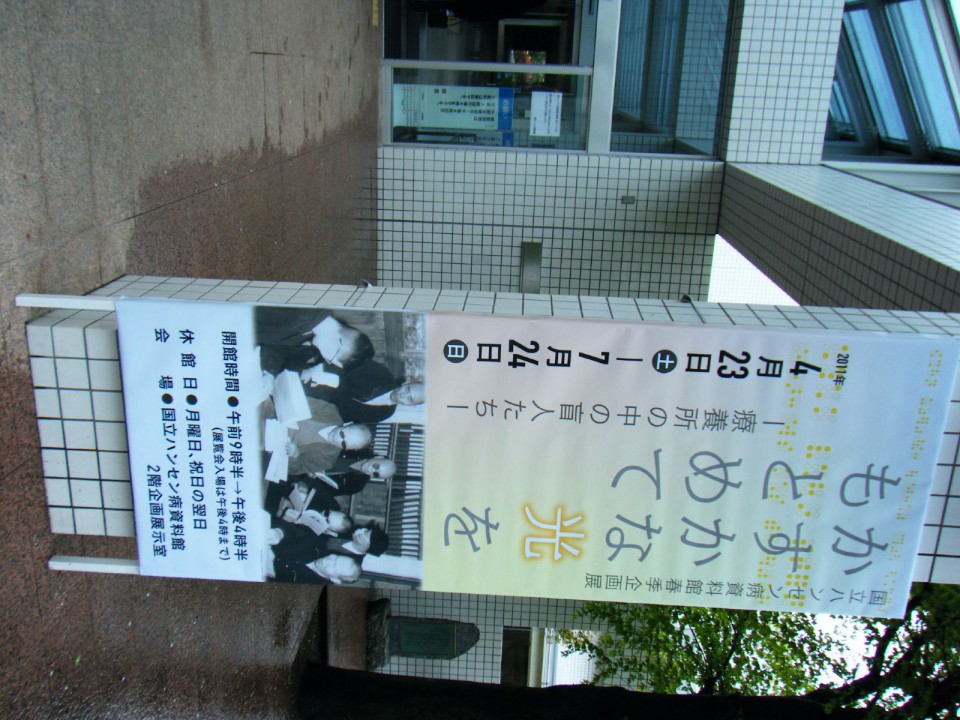 国立ハンセン病資料館春季企画展
かすかな光を
もとめて
―療養所の中の盲人たち―
2011年
4月23日土―7月24日日
開館時間●午前9時半→午後4時半
(展覧会入場は午後4時まで)
休館日●月曜日、祝日の翌日
会場●国立ハンセン病資料館
2階企画展示室